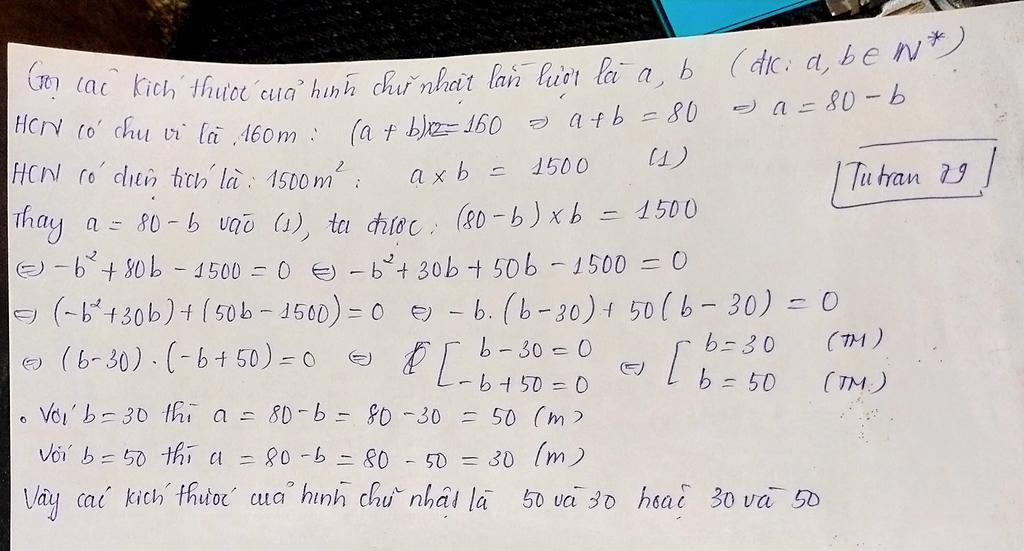 Gọi các kích thước của hình chữ nhật lần lượt là a, b (đk: a, b ∈ N*)
HCN có chu vi là 160m: (a + b)x2=160 ⇒ a+b = 80 ⇒ a = 80 - b
HCN có diện tích là: 1500m²: a x b = 1500 (1)
Tutran 79
Thay a = 80 - b vào (1), ta được: (80 - b) x b = 1500
⇔ -b² + 80b - 1500 = 0 ⇔ -b² + 30b + 50b - 1500 = 0
⇔ (-b² + 30b) + (50b - 1500) = 0 ⇔ - b. (b - 30) + 50(b - 30) = 0
⇔ (b-30) . (-b + 50) = 0 ⇔ [ b - 30 = 0 ⇔ [ b = 30 (TM)
-b + 50 = 0 b = 50 (TM)
• Với b = 30 thì a = 80 - b = 80 - 30 = 50 (m)
Với b = 50 thì a = 80 - b = 80 - 50 = 30 (m)
Vậy các kích thước của hình chữ nhật là 50 và 30 hoặc 30 và 50